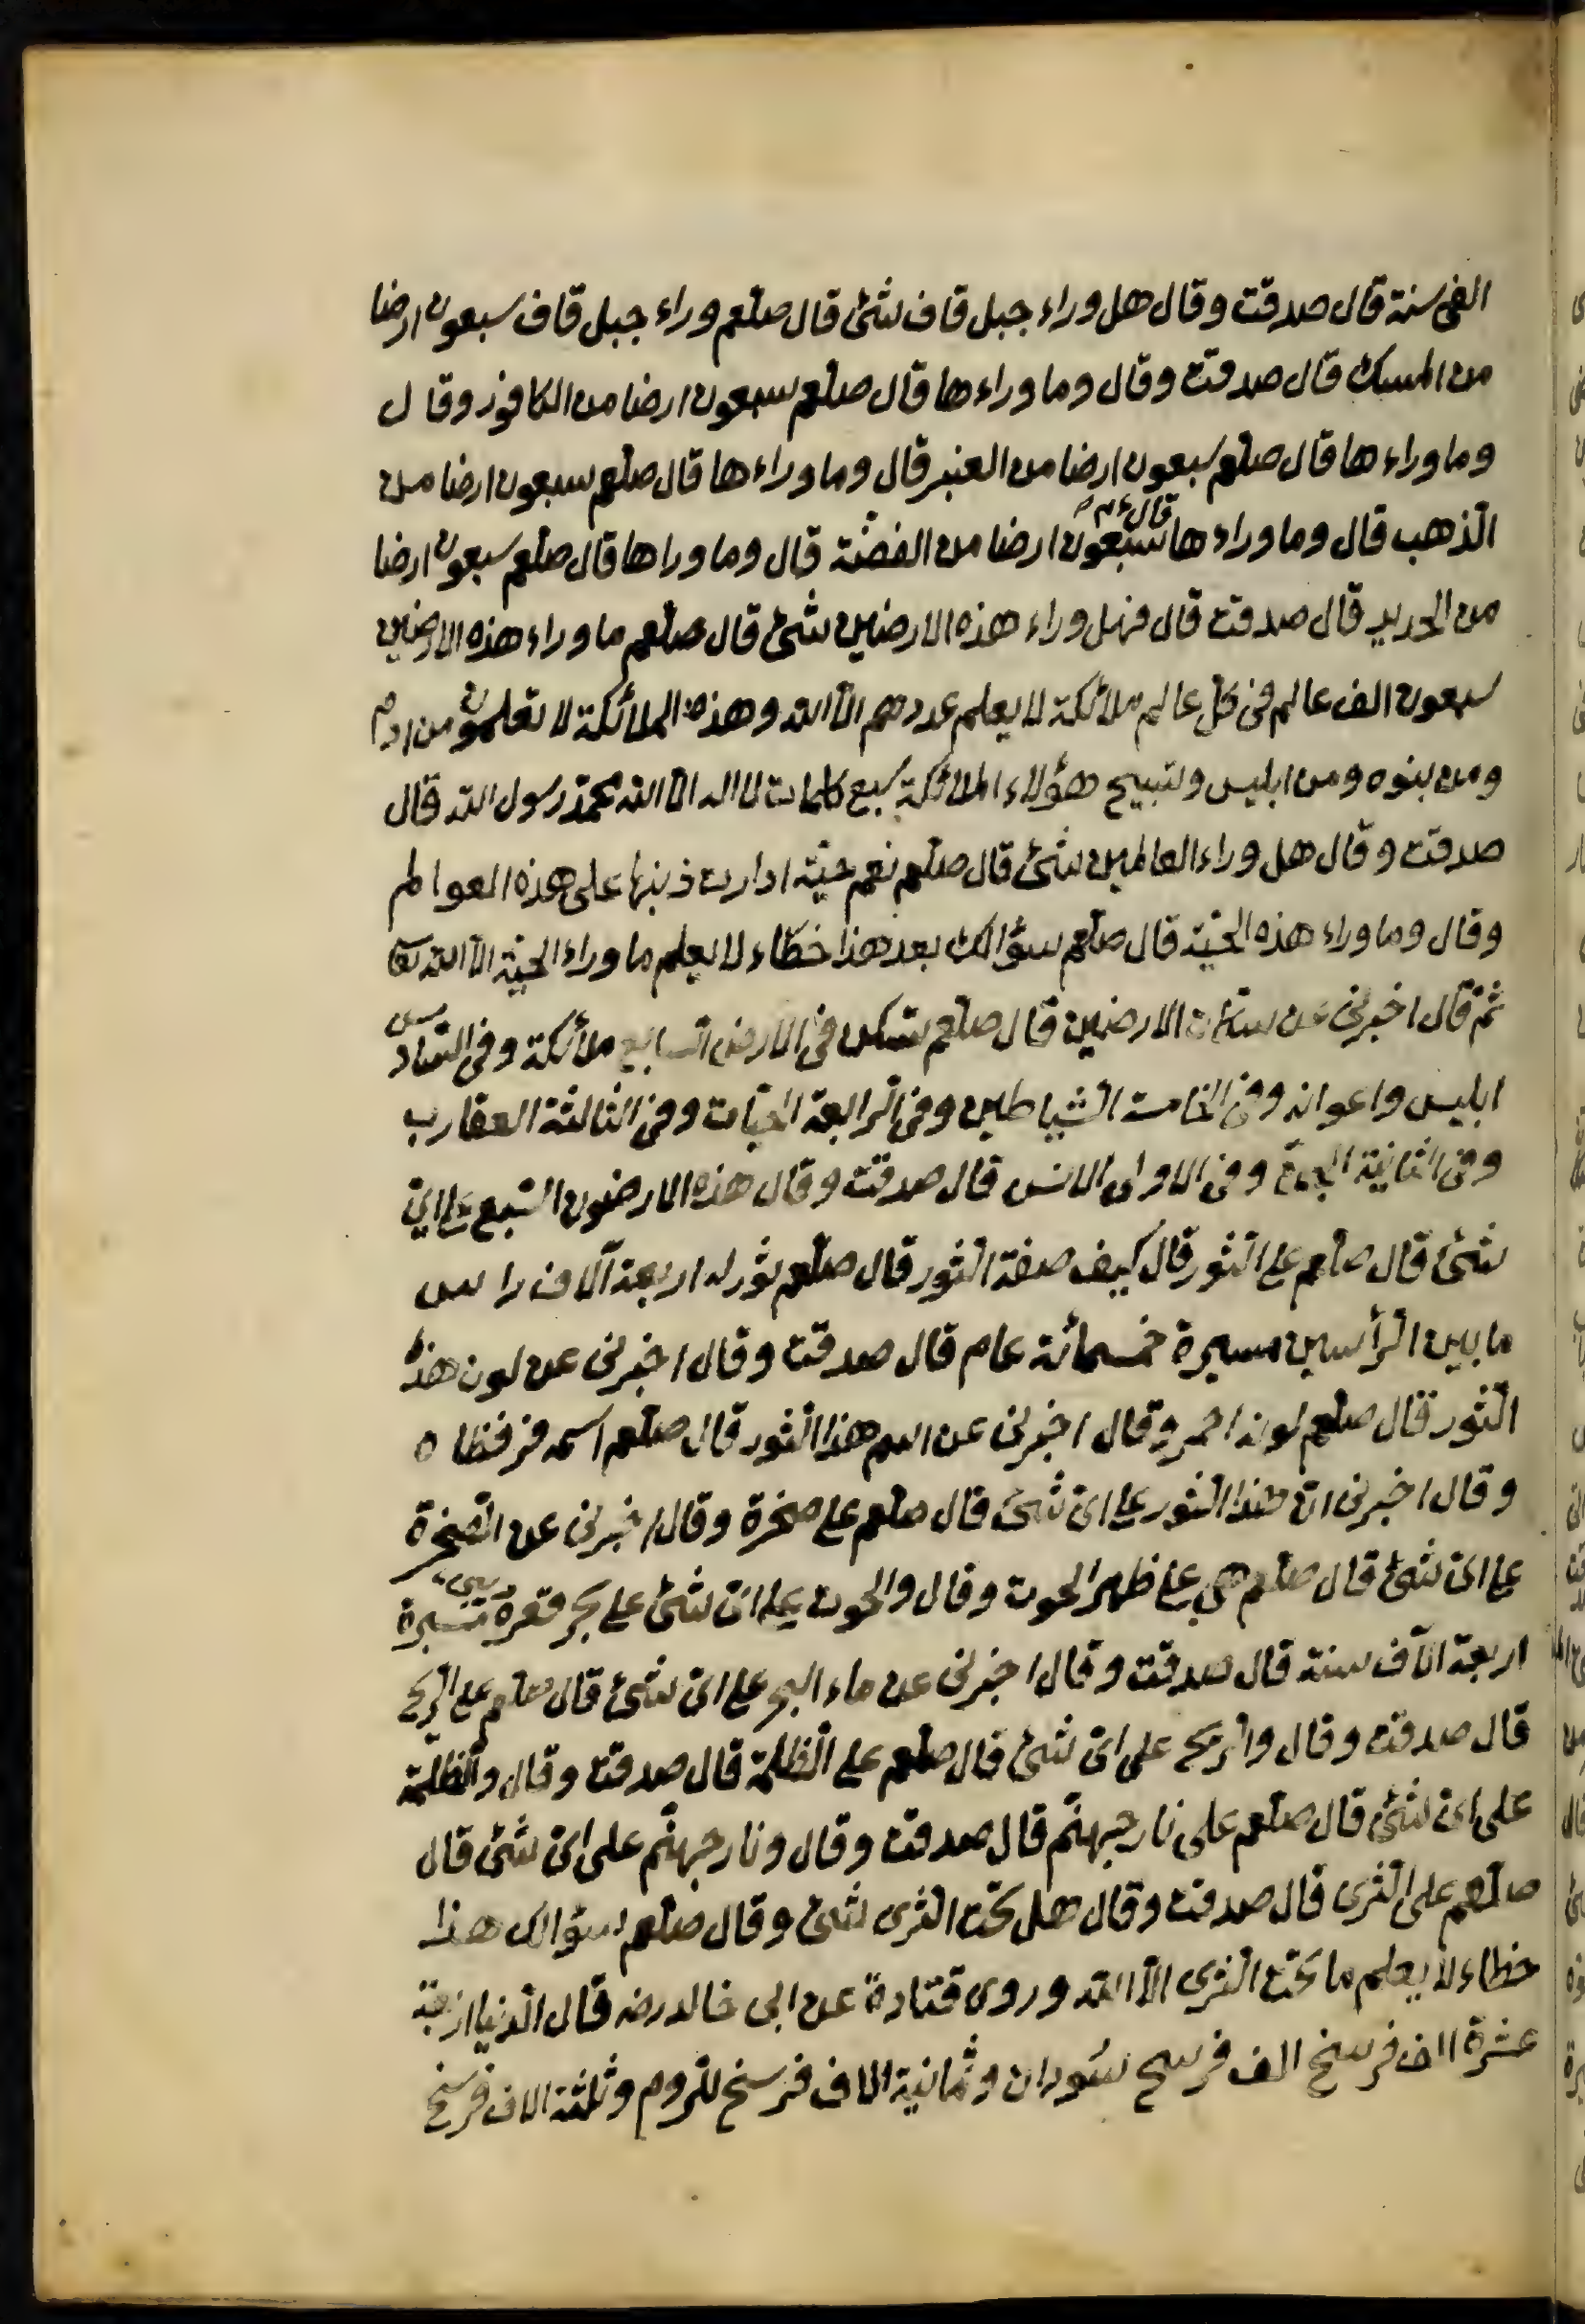 الفى سنة قال صدقت وقال هل وراء جبل قاف شئ قال صلعم وراء جبل قاف سبعون ارضا
من المسك قال صدقت وقال وما وراءها قال صلعم سبعون ارضا من الكافور وقال
وما وراءها قال صلعم سبعون ارضا من العنبر قال وما وراءها قال صلعم سبعون ارضا من
الذهب قال وما وراءها قال سبعون ارضا من الفضّة قال وما وراها قال صلعم سبعون ارضا
من الحديد قال صدقت قال فهل وراء هذه الارضين شئ قال صلعم ما وراء هذه الارضين
سبعون الف عالم فى كلّ عالم ملائكة لا يعلم عددهم الّا الله وهذه الملائكة لا تعلمون من ادم
ومن بنوه ومن ابليس وتسبيح هؤلاء الملائكة سبع كلمات لا اله الّا الله محمّد رسول الله قال
صدقت وقال هل وراء العالمين شئ قال صلعم نعم حيّة ادارت ذنبها على هذه العوالم
وقال وما وراء هذه الحيّة قال صلعم سؤالك بعد هذا خطاء لا يعلم ما وراء الحيّة الّا الله تعا
ثمّ قال اخبرنى عن سكان الارضين قال صلعم سكن فى الارض السابع ملائكة وفى السّادس
ابليس واعوانه وفى الخامسة الشّياطين وفى الرابعة الحيّات وفى الثالثة العقارب
وفى الثانية الجنّ وفى الاولى الانس قال صدقت وقال هذه الارضون السّبع على اىّ
شئ قال صلعم على الثور قال كيف صفة الثور قال صلعم ثور له اربعة آلاف راس
ما بين الرأسين مسيرة خمسمائة عام قال صدقت وقال اخبرنى عن لون هذا
الثور قال صلعم لونه احمر وقال اخبرنى عن اسم هذا الثور قال صلعم اسمه
وقال اخبرنى انّ هذا الثور على اىّ شئ قال صلعم على صخرة وقال اخبرنى عن الصّخرة
على اىّ شئ قال صلعم هى على ظهر الحوت وقال والحوت على اىّ شئ على بحر قعره مسيرة
اربعة آلاف سنة قال صدقت وقال اخبرنى عن ماء البحر على اىّ شئ قال صلعم على الرّيح
قال صدقت وقال والرّيح على اىّ شئ قال صلعم على الظّلمة قال صدقت وقال والظّلمة
على اىّ شئ قال صلعم على نار جهنّم قال صدقت وقال ونار جهنّم على اىّ شئ قال
صلعم على الثرى قال صدقت وقال هل تحت الثرى شئ وقال صلعم سؤالك هذا
خطاء لا يعلم ما تحت الثرى الّا الله وروى قتادة عن ابى خالد رضه قال الدّنيا اربعة
عشرة الف فرسخ الف فرسخ سودان وثمانية الاف فرسخ للرّوم وثلثة الاف فرسخ